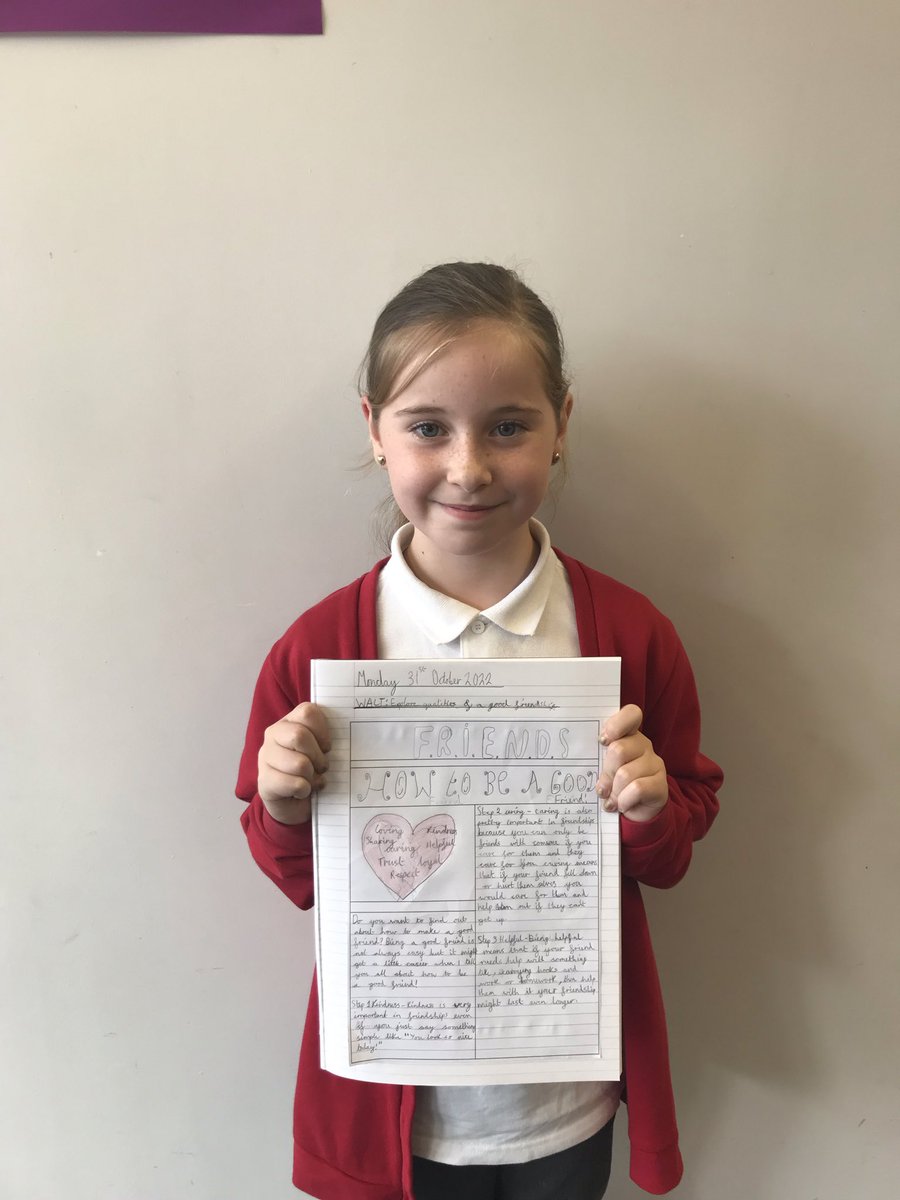 Monday 31st October 2022
WALT: Explore qualities of a good friendship
F.R.I.E.N.D.S
HOW to BE A GOOD
Friend!
Loving Kindness
Sharing
caring Helpful
Trust loyal
Respect
Do you want to find out
about how to make a good
friend? Being a good friend is
not always easy but it might
get a little easier when I tell
you all about how to be
a good friend!
Step 1 Kindness - Kindness is very
important in friendship! even
if you just say something
simple like "You look so nice
today!"
Step 2 caring - caring is also
pretty important in friendship
because you can only be
friends with someone if you
care for them and they
care for you. caring means
that if your friend fell down
or hurt them selves you
would care for them and
help them out if they can't
get up.
Step 3 Helpful - Being helpful
means that if your friend
needs help with something
like, carrying books and
work or homework, then help
them with it your friendship
might last even longer.